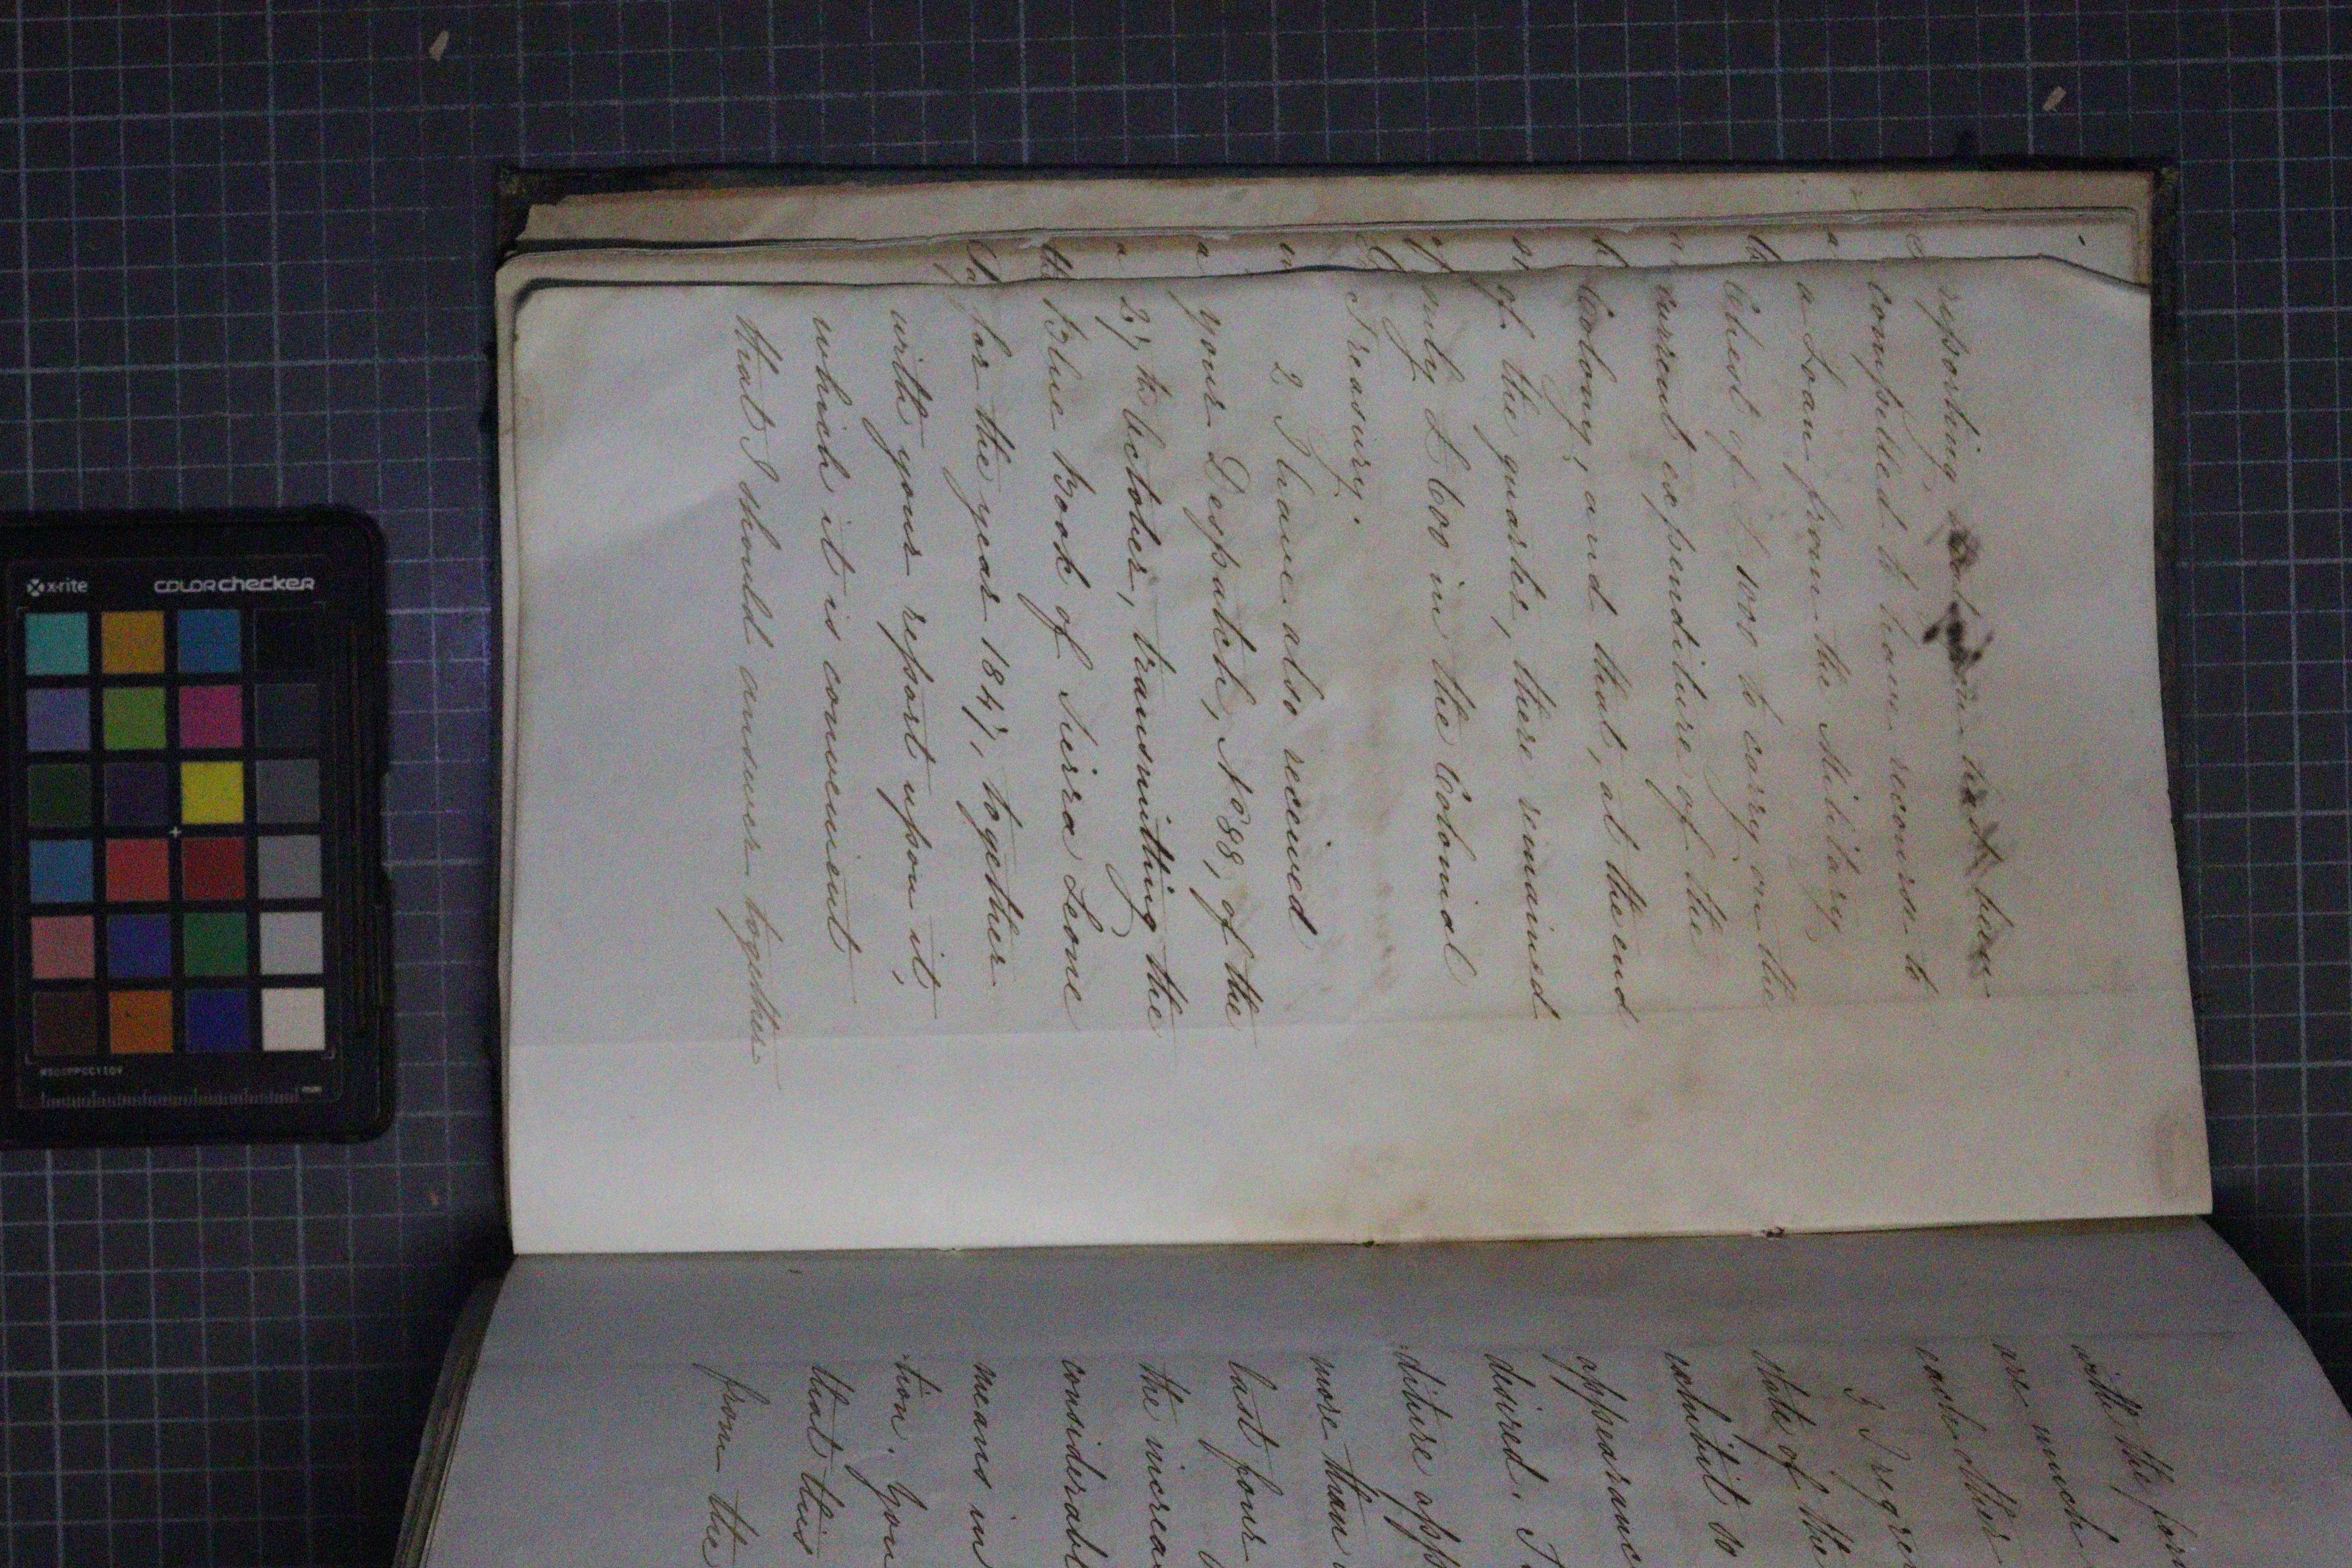 reporting that you had been
compelled to have recourse to
a Loan from the Military
Chest of £1000 to carry on the
current expenditure of the
Colony; and that, at the end
of the quarter, there remained
only £600 in the Colonial
Treasury.
2 I have also received
your Despatch, No 88, of the
27th October, transmitting the
Blue Book of Seirra Leone
for the year 1847, together
with your report upon it,
which it is convenient
that I should answer together
with the for
are much
each other
3 I regre
state of the
exhibit so
appearanc
desired. I
diture app
more than
last four
the increas
considerabl
means in
tion. You
that this
from the
x-rite
colorchecker
MSCCPPCC1104